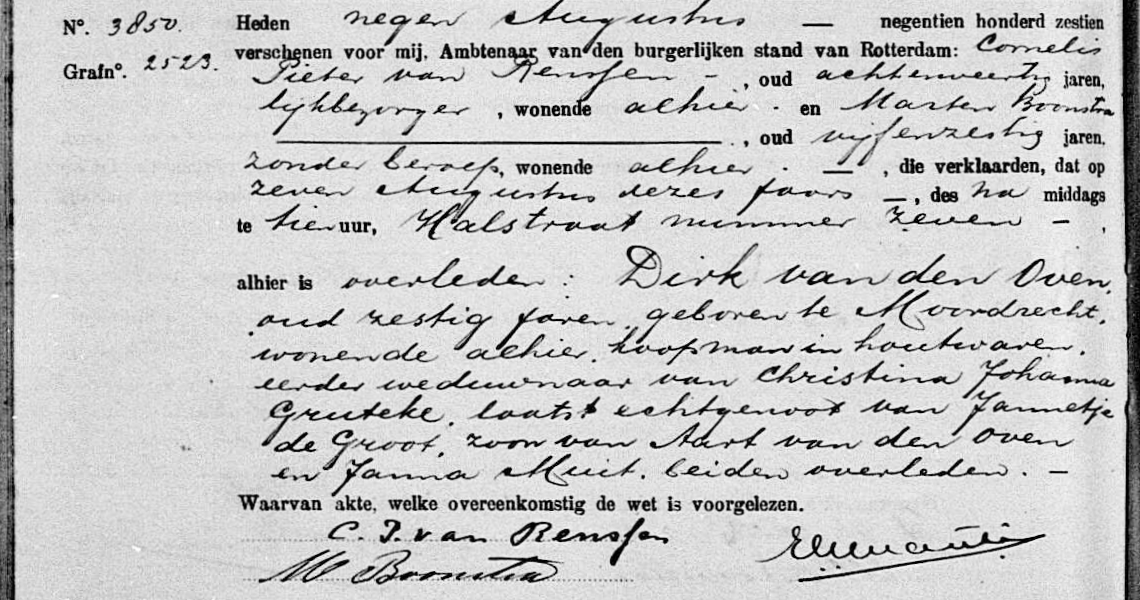 Nº. 3850. Heden negen Augustus — negentien honderd zestien
verschenen voor mij, Ambtenaar van den burgerlijken stand van Rotterdam: Cornelis
Grafnº. 2523. Pieter van Renssen -, oud achtenveertig jaren,
lijkbezorger, wonende alhier. en Marten Boonstra
, oud vijfenzestig jaren,
zonder beroep, wonende alhier. —, die verklaarden, dat op
zeven Augustus dezes jaars —, des na middags
te tien uur, Halstraat nummer zeven -,
alhier is overleden: Dirk van den Oven,
oud zestig jaren, geboren te Moordrecht,
wonende alhier, koopman in houtwaren,
eerder weduwnaar van Christina Johanna
Gruteke, laatst echtgenoot van Jannetje
de Groot, zoon van Aart van den Oven
en Janna Muit, beiden overleden. —
Waarvan akte, welke overeenkomstig de wet is voorgelezen.
C. P. van Renssen
M Boonstra